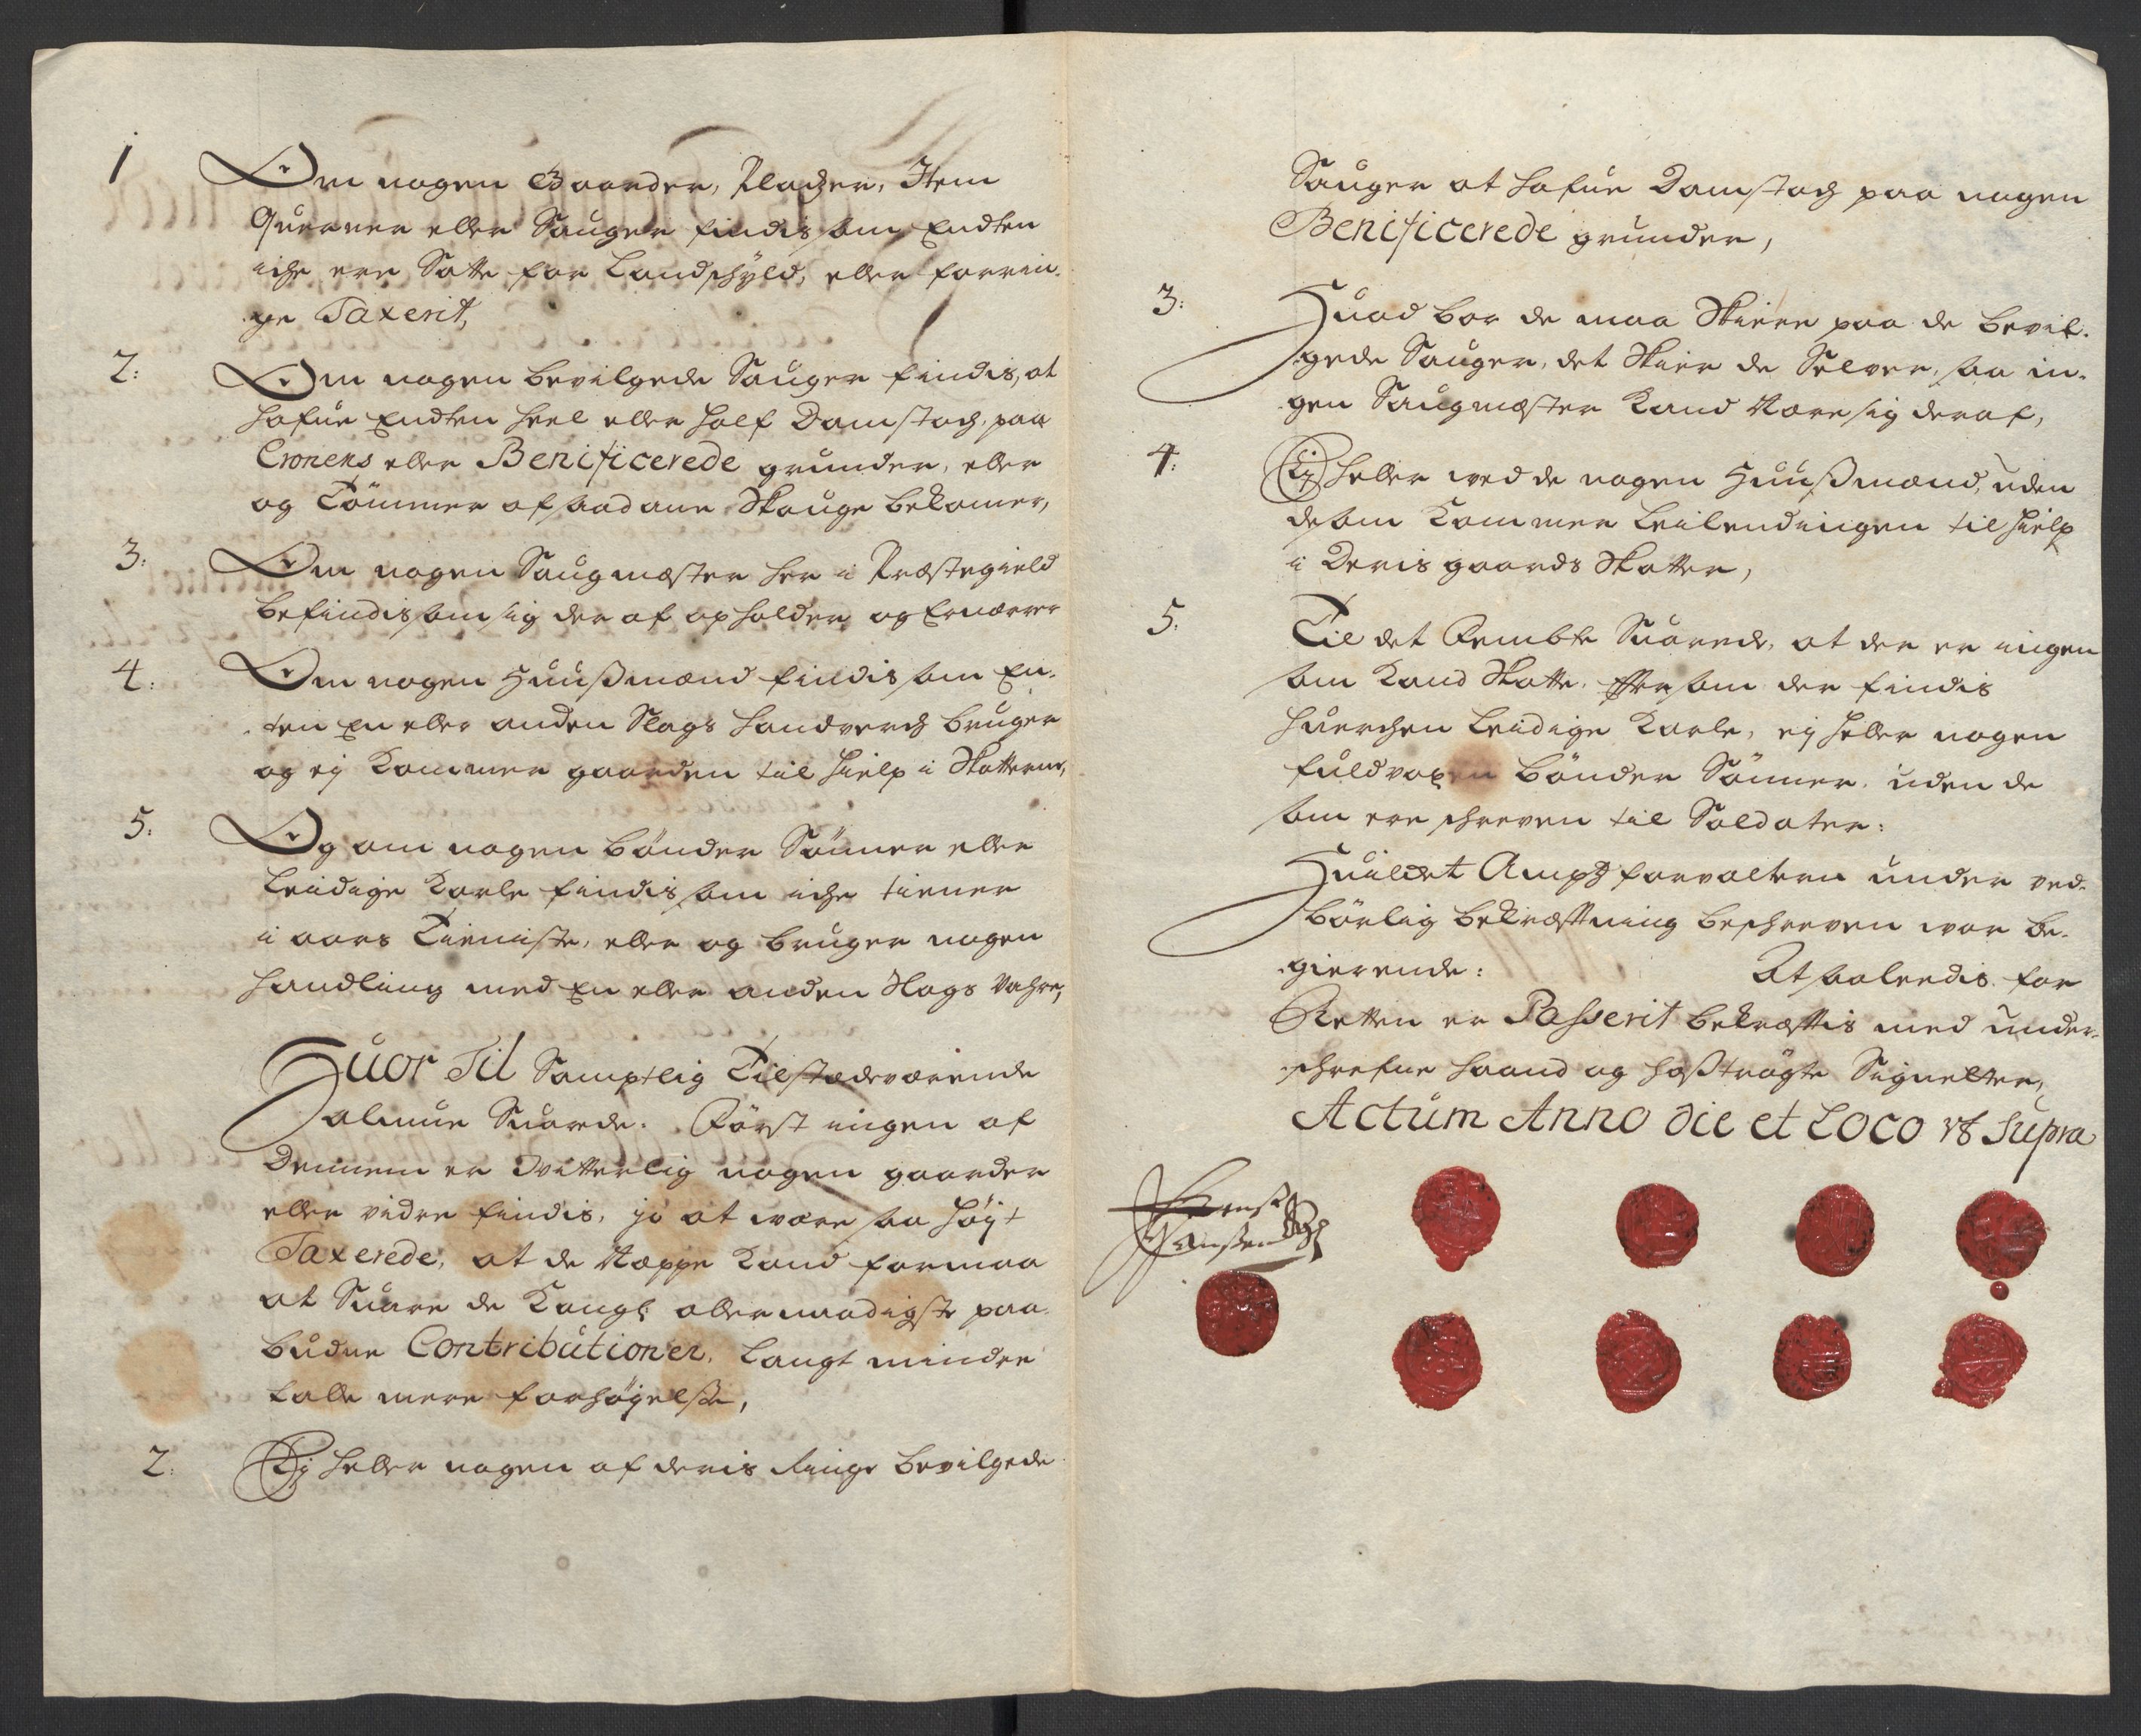 1 Om nogen Gaarder, Pladzer, Item
Querner eller Sauger findis som Endten
iche ere Satte for Landschyld, eller for rin-
ge Taxerit,
2: Om nogen bevilgede Sauger findis, at
hafue Endten heel eller half Damstoch, paa
Cronens eller Benificerede grunder, eller
og Tömmer af saadane Skouge bekomer,
3: Om nogen Saugmæster her i Præstegield
befindis som sig der af opholder og Ernærer
4: Om nogen Huusmænd findis som En-
ten En eller anden Slags handverch bruger
og ej kommer gaarden til hielp i Skatterne,
5: Og om nogen bönder Sönner eller
Leidige Karle findis som iche tiener
i aars Tieniste, eller og bruger nogen
handling med En eller anden Slags Vahre,
Huor Til Samptlig Tilstædeværende
almue Suarde. Först ingen af
Dennem er Vitterlig nogen gaarder
eller vidre findis, jo at være saa höyt
Taxerede, at de Næppe kand formaa
at Suare de Kongl: allernaadigste paa-
budne Contributioner, langt mindre
taale mere forhöyelse,
2: Ej heller nogen af deris Ringe bevilgede
Sauger at hafue Damstoch paa nogen
Benificerede grunder,
3: Huad bor de maa Skiere paa de bevil-
gede Sauger, det Skier de Selver, saa in-
gen Saugmæster kand Nære sig deraf,
4: Ej heller ved de nogen Huusmænd, uden
de som kommer Leilendingen til hielp
i Deris gaards Skatter,
5: Til det Fembte Suarede, at der er ingen
som kand Skatte, Efftersom der findis
huerchen Leidige Karle, ej heller nogen
fuldvoxen bönder Sönner, uden de
som ere schreven til Soldater:
Huilcket Ampz forvalteren under ved-
börlig bekræfftning beschreven var be-
gierende: At saaledis for
Retten er Passerit bekræfftis med under-
schrefne haand og hoströgte Signetter,
Actum Anno die et Loco ut Supra
Hanssen